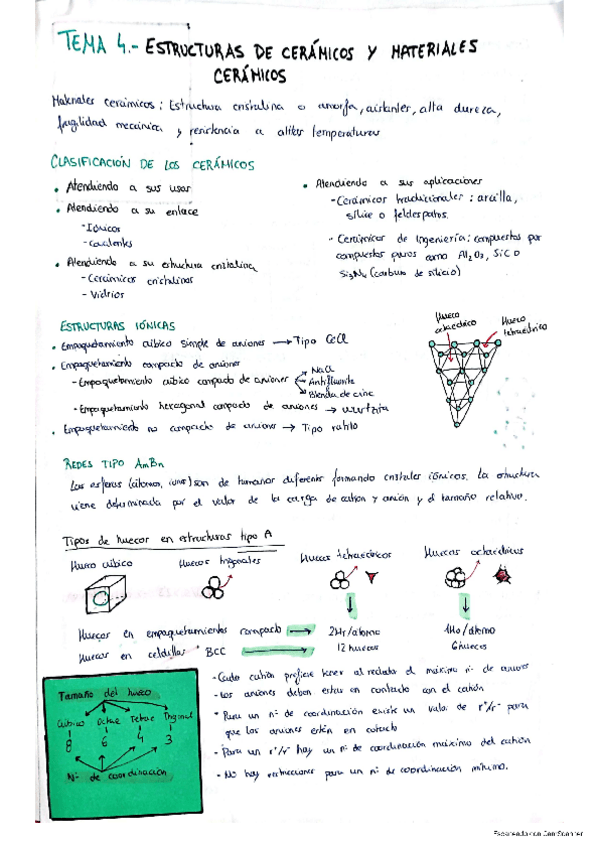 TEMA 4.- ESTRUCTURAS DE CERÁMICOS Y MATERIALES
CERÁMICOS
Materiales cerámicos: Estructura cristalina o amorfa, aislantes, alta dureza,
fragilidad mecánica y resistencia a altas temperaturas
CLASIFICACIÓN DE LOS CERÁMICOS
• Atendiendo a sus usos
• Atendiendo a su enlace
- Iónicos
- Covalentes
• Atendiendo a su estructura cristalina
- Cerámicos cristalinos
- Vidrios
• Atendiendo a sus aplicaciones
- Cerámicos tradicionales: arcilla,
sílice o feldespatos.
- Cerámicos de Ingeniería: compuestos por
compuestos puros como Al2O3, SiC o
Si3N4 (carburo de silicio)
ESTRUCTURAS IÓNICAS
• Empaquetamiento cúbico simple de aniones → Tipo CsCl
• Empaquetamiento compacto de aniones
- Empaquetamiento cúbico compacto de aniones
NaCl
Antifluorita
Blenda de cinc
- Empaquetamiento hexagonal compacto de aniones → wurtzita
• Empaquetamiento no compacto de aniones → Tipo rutilo
Hueco
octaédrico
Hueco
tetraédrico
REDES TIPO AmBn
Las esferas (átomos, iones) son de tamaños diferentes formando cristales iónicos. La estructura
viene determinada por el valor de la carga de catión y anión y el tamaño relativo.
Tipos de huecos en estructuras tipo A
Hueco cúbico
Huecos trigonales
Huecos tetraédricos
Huecos octaédricos
Huecos en empaquetamientos compacto → 2Ht/átomo 1Ho/átomo
Huecos en celdillas BCC → 12 huecos 6 huecos
Tamaño del hueco
Cúbico Octae Tetrae Trigonal
8 6 4 3
Nº de coordinación
- Cada catión prefiere tener al rededor el máximo nº de aniones
- Los aniones deben estar en contacto con el catión
- Para un nº de coordinación existe un valor de r+/r- para
que los aniones estén en contacto
- Para un r+/r- hay un nº de coordinación máximo del catión
- No hay restricciones para un nº de coordinación mínimo.
Escaneado con CamScanner